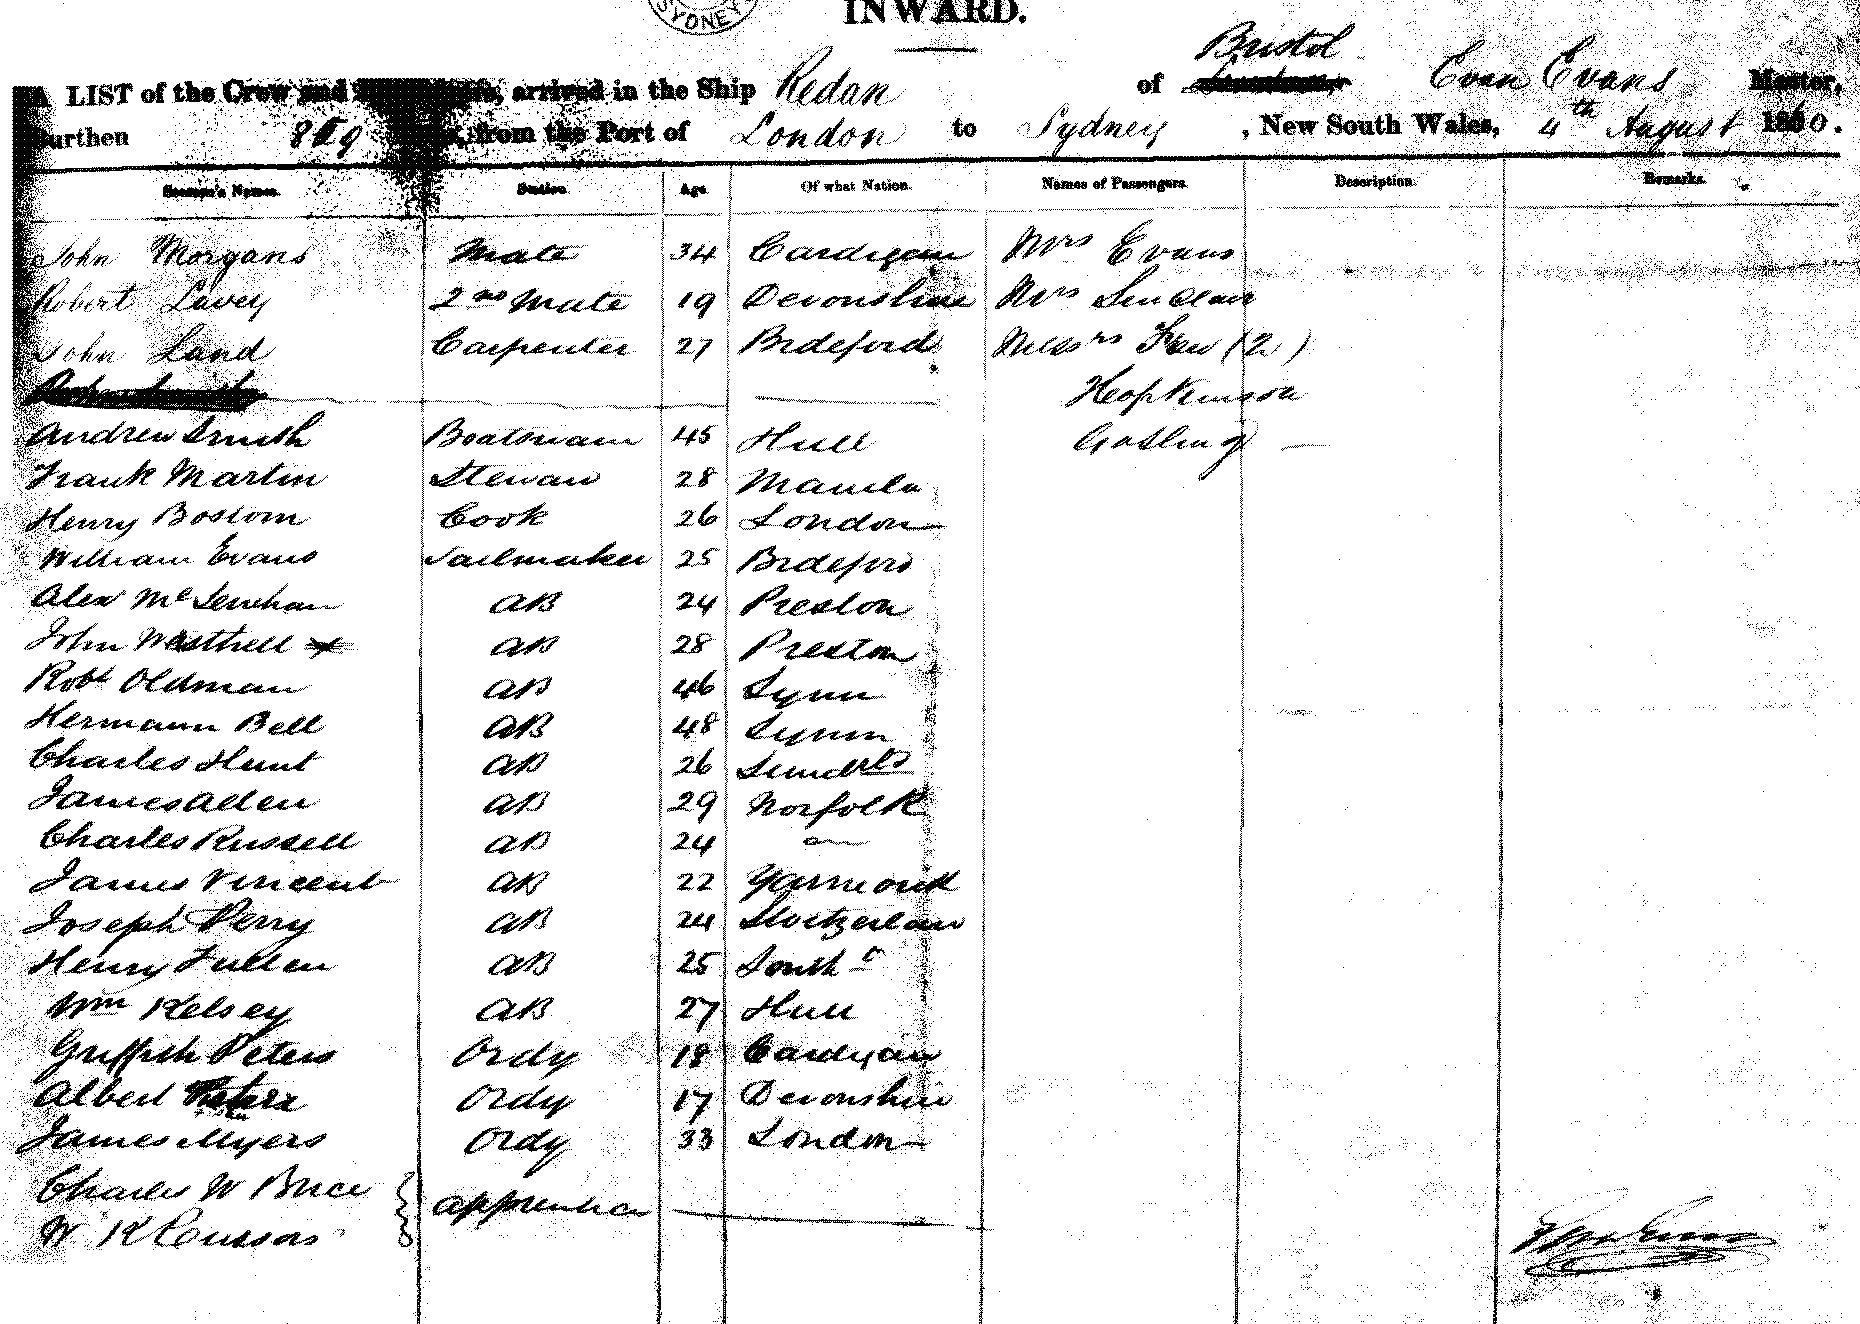 SYDNEY
INWARD.
Bristol
A LIST of the Crew and arrived in the Ship Redan of Evan Evans Master,
Burthen from the Port of London to Sydney, New South Wales, 4th August 1860.
Seaman's Names. Station. Age. Of what Nation. Names of Passengers. Description. Remarks.
John Morgans Mate 34 Cardigan Mrs Evans
Robert Lavey 2nd Mate 19 Devonshire Mrs Sinclair
John Land Carpenter 27 Bideford Messrs (2)
Hopkinson
Andrew Smith Boatswain 45 Hull Gosling
Frank Martin Steward 28 Manila
Henry Bostom Cook 26 London
William Evans Sailmaker 25 Bideford
Alex Mc AB 24 Preston
John Westhell AB 28 Preston
Robt Oldman AB 46 Lynn
Hermann Bell AB 48 Lynn
Charles Hunt AB 26
James Allen AB 29 Norfolk
Charles Russell AB 24
James Vincent AB 22 Yarmouth
Joseph Perry AB 24 Switzerland
Henry Fullen AB 25
Wm Kelsey AB 27 Hull
Griffith Peters Ordy 18 Cardigan
Albert Ordy 17 Devonshire
James Myers Ordy 33 London
Charles W Brice
Apprentices
W K